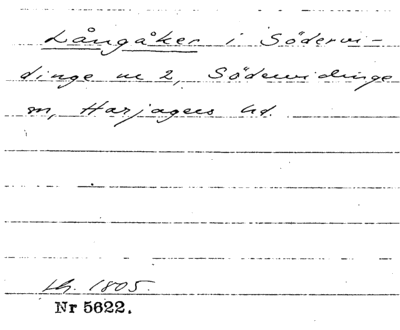 Långåker i Södervi-
dinge nr 2, Södervidinge
sn, Harjagers hd.
lh. 1805.
Nr 5622.